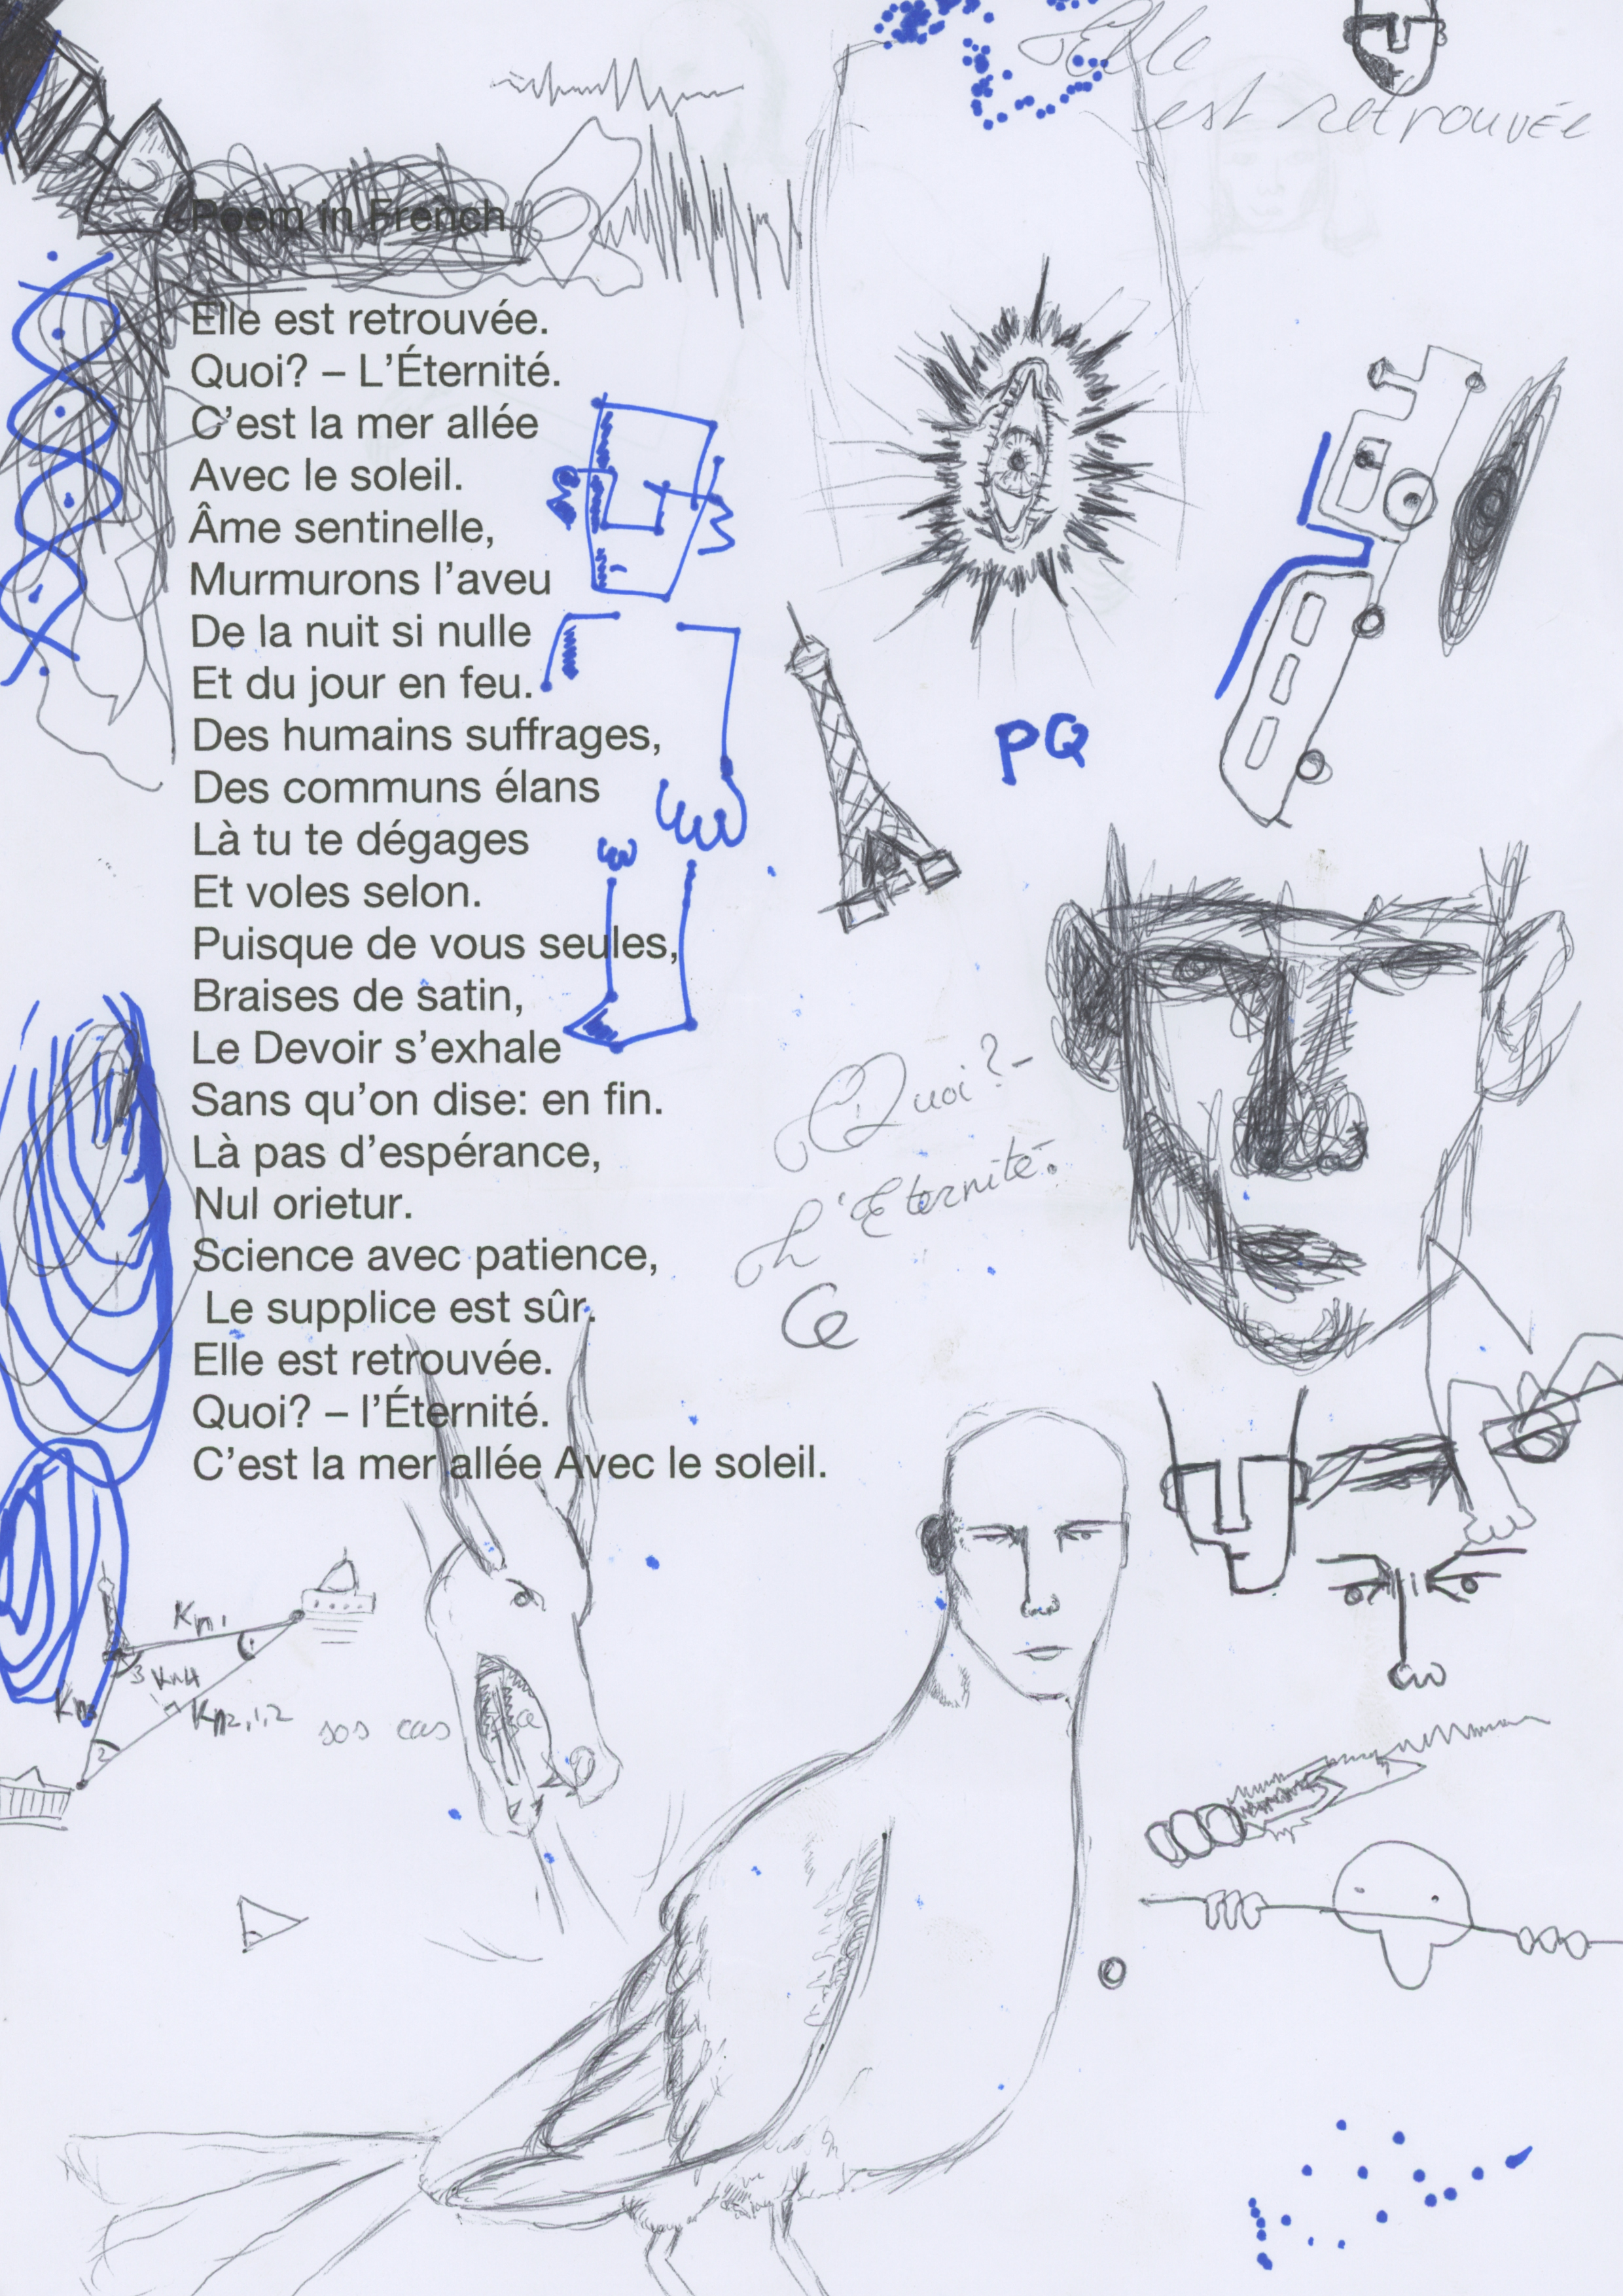 Elle
est retrouvée
Poem in French
Elle est retrouvée.
Quoi? – L'Éternité.
C'est la mer allée
Avec le soleil.
Âme sentinelle,
Murmurons l'aveu
De la nuit si nulle
Et du jour en feu.
Des humains suffrages,
Des communs élans
Là tu te dégages
Et voles selon.
Puisque de vous seules,
Braises de satin,
Le Devoir s'exhale
Sans qu'on dise: en fin.
Là pas d'espérance,
Nul orietur.
Science avec patience,
Le supplice est sûr.
Elle est retrouvée.
Quoi? – l'Éternité.
C'est la mer allée Avec le soleil.
PQ
Quoi?-
L'Eternité.
Ce
1
3
2
sos cas